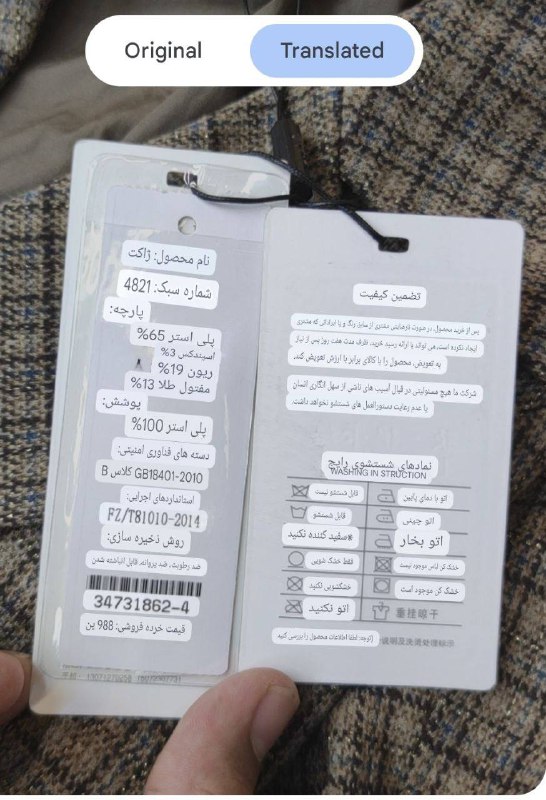 Original
Translated
نام محصول: ژاکت
شماره سبک: 4821
پارچه:
پلی استر 65%
اسپندکس 3%
ریون 19%
مفتول طلا 13%
پوشش:
پلی استر 100%
دسته های فناوری امنیتی:
GB18401-2010 کلاس B
استانداردهای اجرایی:
FZ/T81010-2014
روش ذخیره سازی:
ضد رطوبت، ضد پروانه، قابل انباشته شدن
34731862-4
قیمت خرده فروشی: 988 ین
تضمین کیفیت
پس از خرید محصول، در صورت نارضایتی مشتری از سایز، رنگ و یا ایراداتی که مشتری
ایجاد نکرده است، می تواند با ارائه رسید خرید، ظرف مدت هفت روز پس از نیاز
به تعویض، محصول را با کالای برابر با ارزش تعویض کند.
شرکت ما هیچ مسئولیتی در قبال آسیب های ناشی از سهل انگاری انسان
یا عدم رعایت دستورالعمل های شستشو نخواهد داشت.
نمادهای شستشوی رایج
WASHING IN STRUCTION
قابل شستشو نیست
اتو با دمای پایین
قابل شستشو
اتو چینی
سفید کننده نکنید
اتو بخار
فقط خشک شویی
خشک کن لباس موجود نیست
خشکشویی نکنید
خشک کن موجود است
اتو نکنید
垂挂晾干
(توجه: لطفا اطلاعات محصول را بررسی کنید
说明及洗涤处理标示